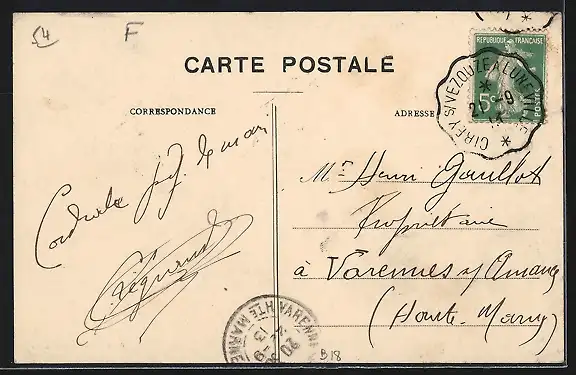 54
F
CARTE POSTALE
CORRESPONDANCE
ADRESSE
REPUBLIQUE FRANÇAISE
5c
POSTES
CIREY S/VEZOUZE A LUNE
21 -9
Mr Henri Gaullot
Propriétaire
à Varennes s/ Amance
(Haute-Marne)
Cordiale
VARENN
HTE MARNE
B18